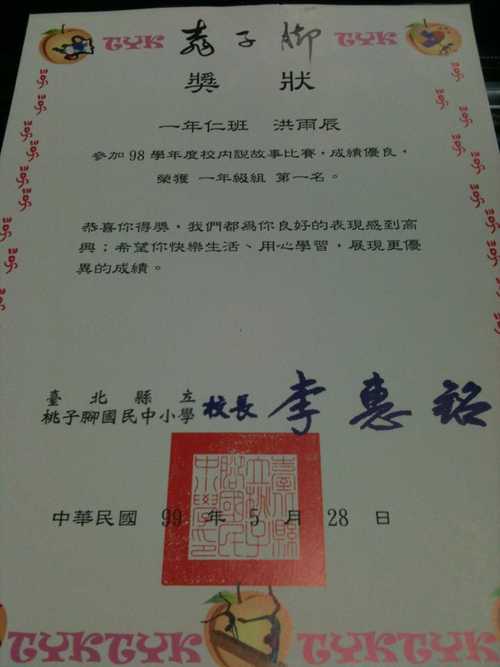 TYK 桃子腳 TYK
獎 狀
一年仁班 洪雨辰
參加98學年度校內說故事比賽，成績優良，
榮獲 一年級組 第一名。
恭喜你得獎，我們都為你良好的表現感到高
興；希望你快樂生活、用心學習，展現更優
異的成績。
臺北縣立
桃子腳國民中小學 校長 李惠銘
臺北縣立桃子腳國民中小學印
中華民國 99 年 5 月 28 日
TYKTYK TYKTYK